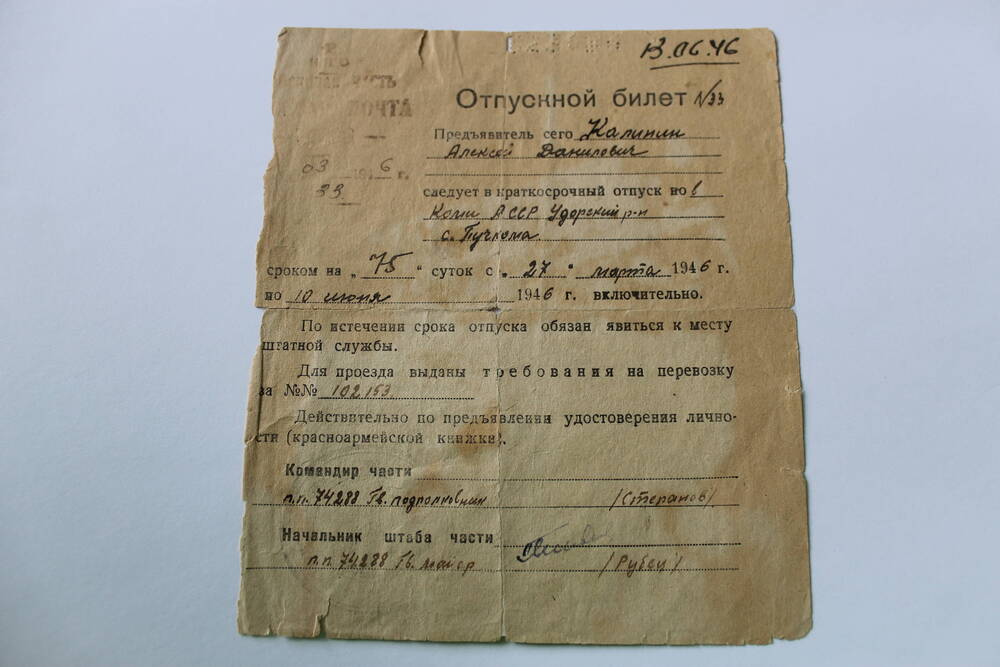 13.06.46
Отпускной билет №33
Предъявитель сего Калинин
Алексей Данилович
03 194 6 г.
33
следует в краткосрочный отпуск но в
Коми АССР Удорский р-н
с. Пучкома.
сроком на „ 75 “ суток с „ 27 “ марта 1946 г.
по 10 июня 1946 г. включительно.
По истечении срока отпуска обязан явиться к месту
штатной службы.
Для проезда выданы требования на перевозку
за №№ 102153.
Действительно по предъявлении удостоверения лично-
сти (красноармейской книжки).
Командир части
п.п. 74288 Гв. подполковник /Степанов/
Начальник штаба части
п.п. 74288 Гв. майор /Рубец/